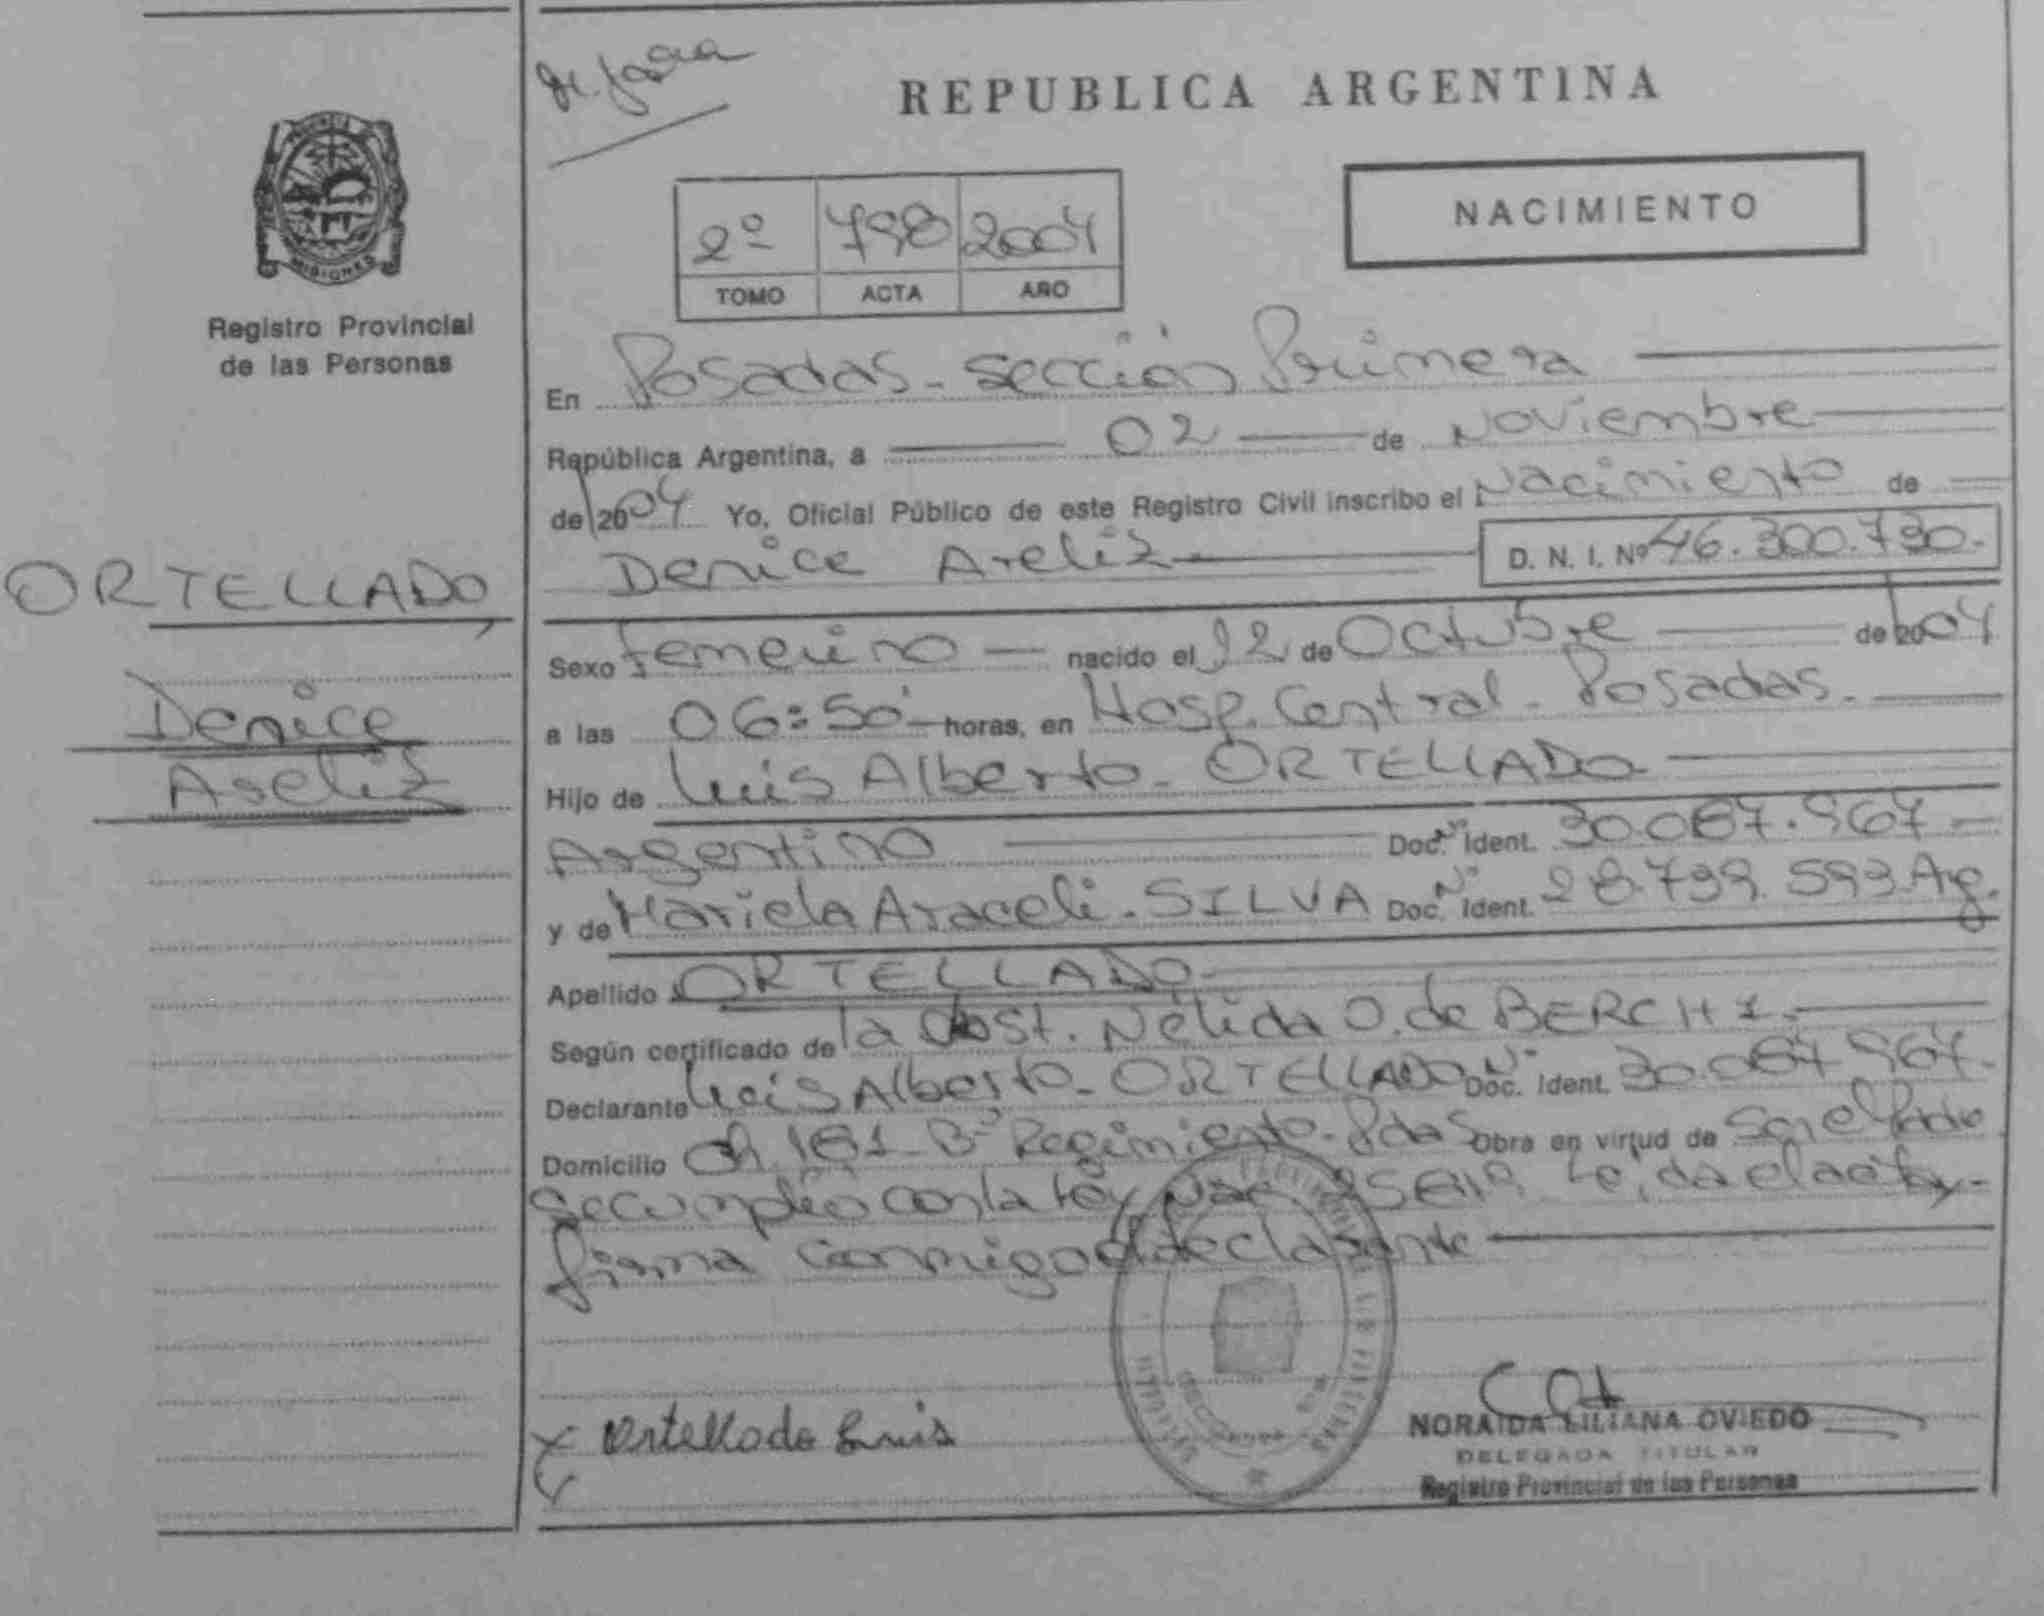 REPUBLICA ARGENTINA
NACIMIENTO
PROVINCIA DE
MISIONES
Registro Provincial
de las Personas
2º 798 2004
TOMO ACTA AÑO
En Posadas - Sección Primera
República Argentina, a 02 de Noviembre
de 2004 Yo, Oficial Público de este Registro Civil inscribo el Nacimiento de
Denice Areliz D. N. I. Nº 46.300.730.
ORTELLADO,
Denice
Areliz
Sexo femenino nacido el 12 de Octubre de 2004
a las 06:50 horas, en Hosp. Central - Posadas.
Hijo de Luis Alberto - ORTELLADO
Argentino Doc. Nº Ident. 30.087.967
y de Mariela Araceli. SILVA Doc. Nº Ident. 28.739.593 Arg.
Apellido ORTELLADO
Según certificado de la Obst. Nélida O. de BERCHI.
Declarante Luis Alberto - ORTELLADO Doc. Nº Ident. 30.087.967.
Domicilio Ch 181 - Bº Regimiento - Pdas Obra en virtud de Ser el Padre
Se cumplió con la Ley Leída el acta y
firma conmigo el declarante
Ortellado Luis
NORAIDA LILIANA OVIEDO
DELEGADA TITULAR
Registro Provincial de las Personas